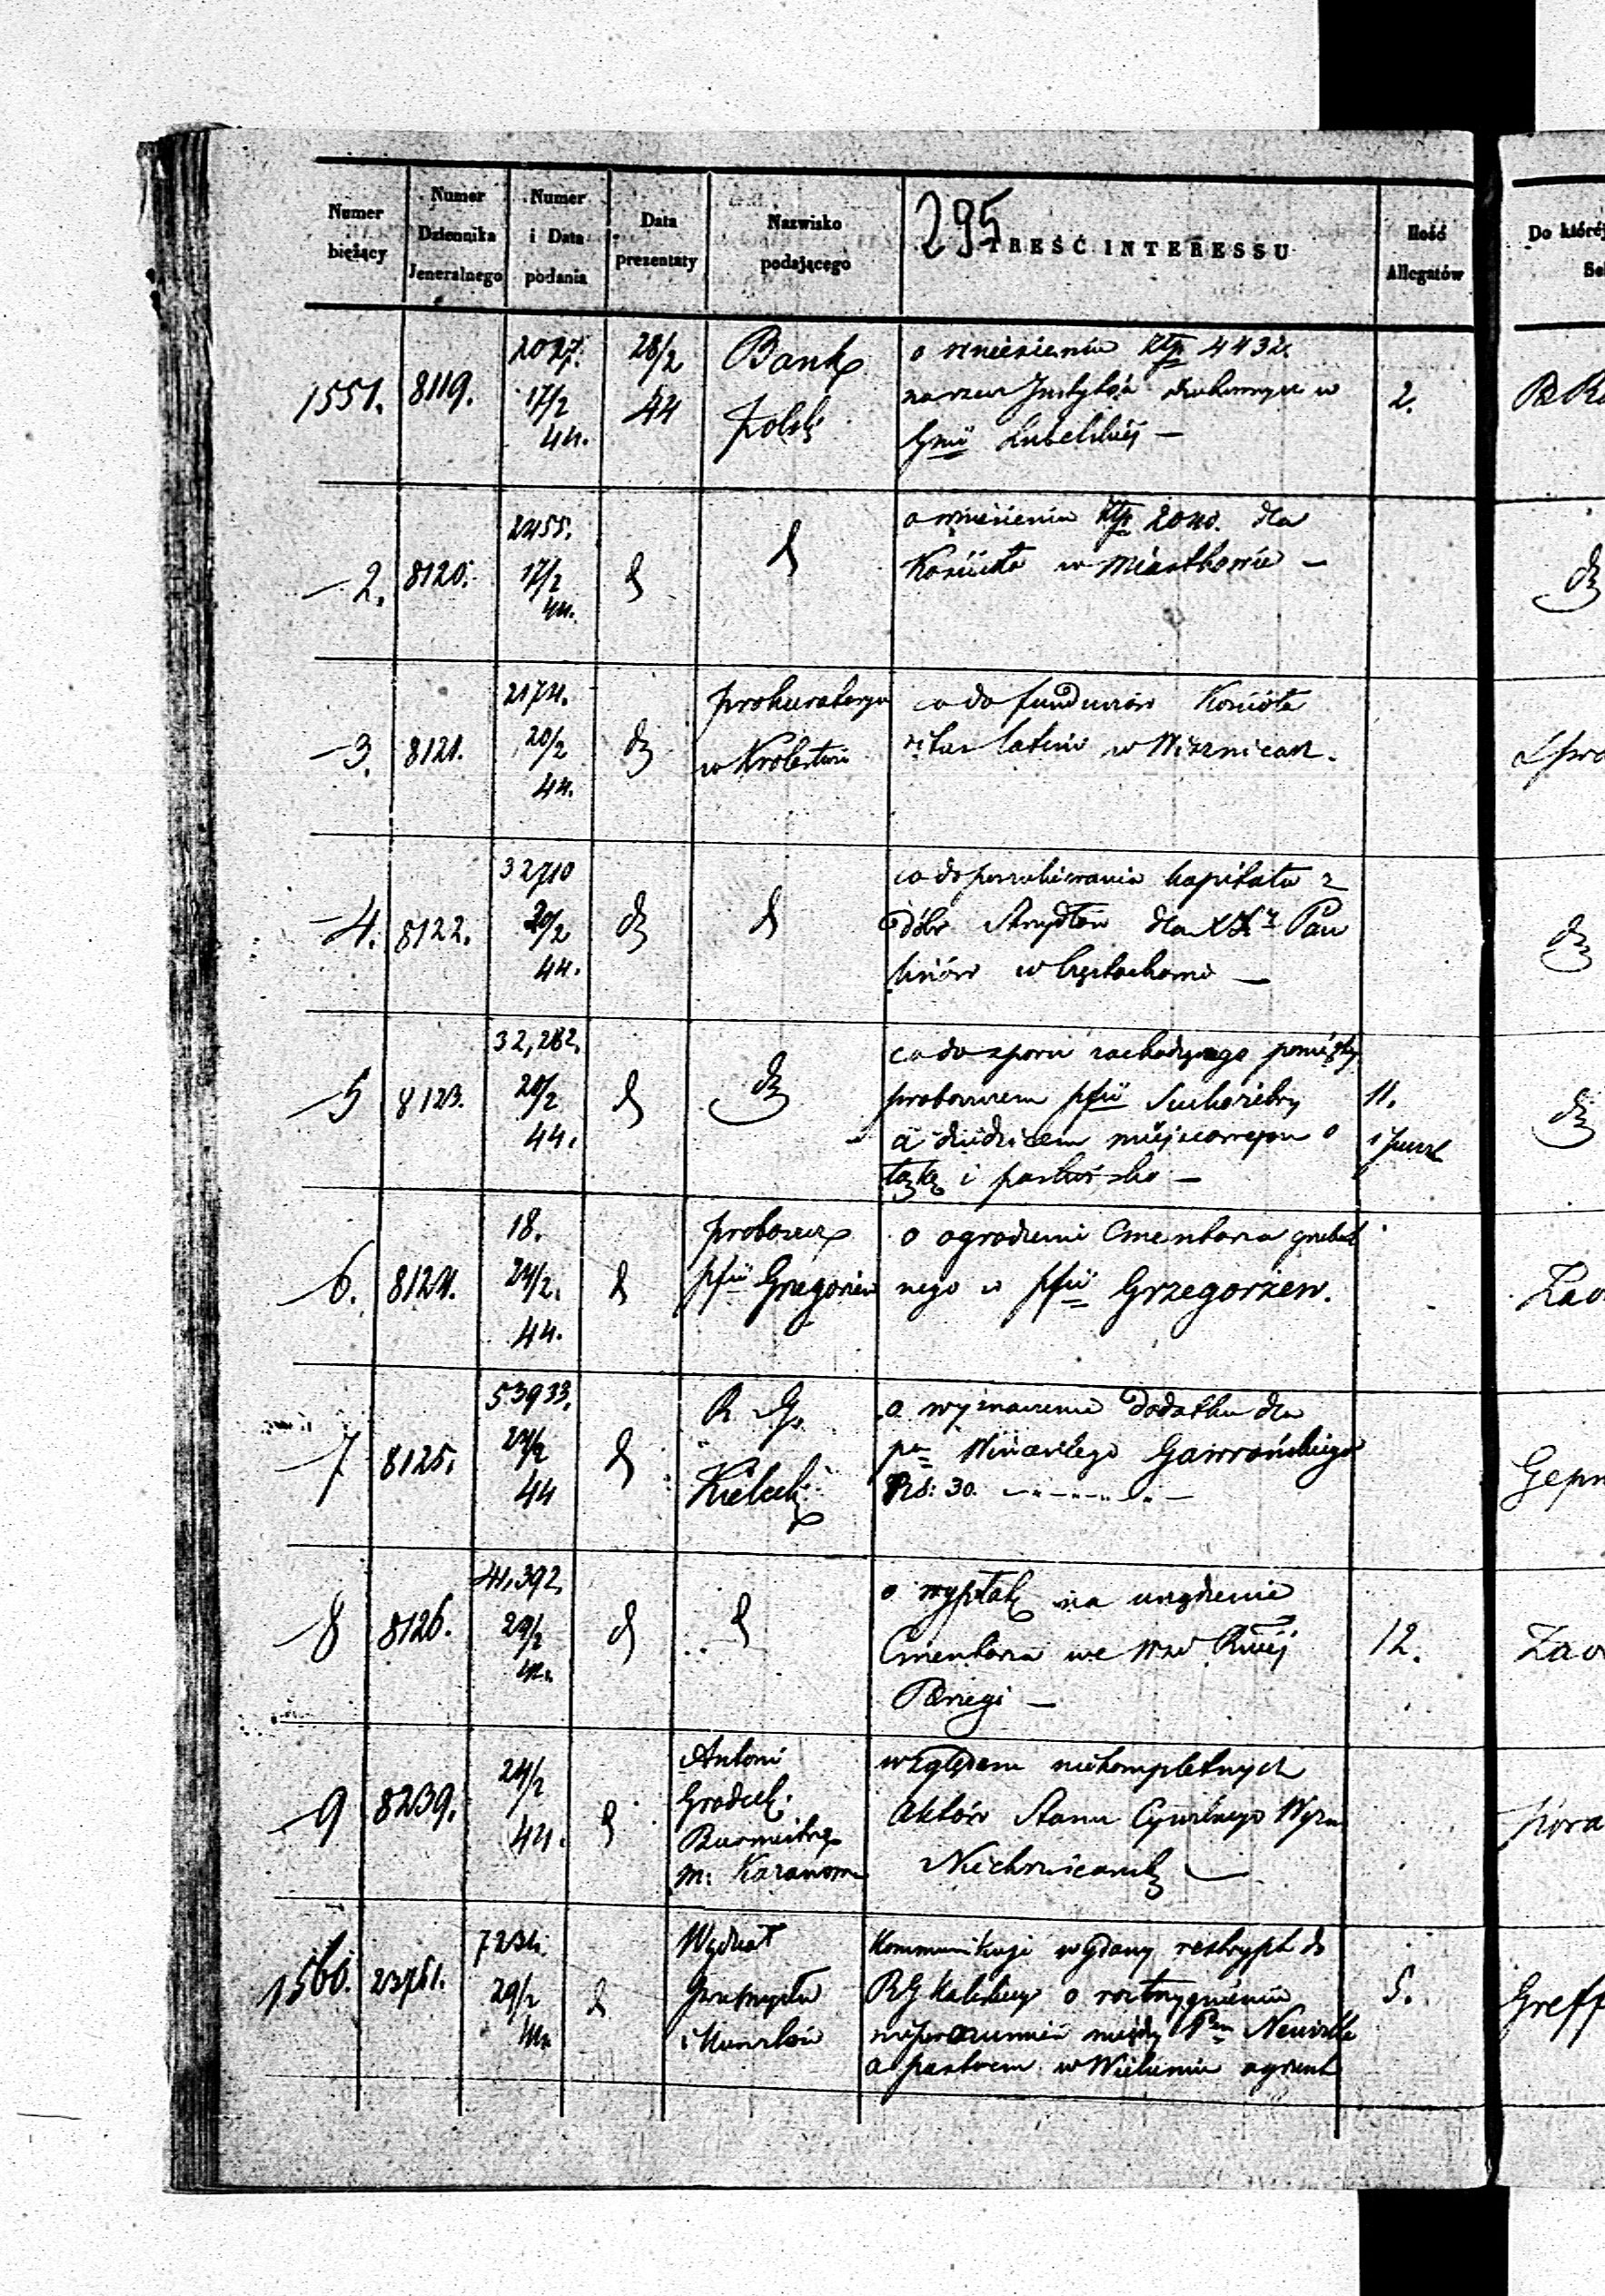 295
Numer bieżący
Numer Dziennika Jeneralnego
Numer i Data podania
Data prezentaty
Nazwisko podającego
TREŚĆ INTERESSU
Ilość Allegatów
Do której
1551. 8119. 2027. 17/2 44. 28/2 44 Bank Polski
o wniesieniu Złp 4432
na rzecz Instytów duchownych w
Gnii Lubelskiej —
2.
2. 8120. 2455. 17/2 44. d d
o wniesieniu Złp 2040. dla
Kościoła w Miastkowie —
dz
3. 8121. 2174. 20/2 44. dz Prokuratorya w Królestwie
co do funduszów Kościoła
ritus latini w Wiznicach.
4. 8122. 32710 20/2 44. dz d
co do poszukiwania kapitału z
dóbr Skrydłów dla XX Pau
linów w Częstochowie —
dz
5 8123. 32,282. 20/2 44. d dz
co do sporu zachodzącego pomiędzy
proboszczem pfii Suchożebry
a dziedzicem miejscowym o
łąkę i pastwisko —
11.
dz
6. 8124. 18. 24/2. 44. d proboszcz pfii Gregoriew
o ogrodzeni Cmentarza grzebal
nego w pfii Grzegorzew.
7 8125. 53933. 24/2 44 d R G. Kielecki
o wyznaczenie dodatku dla
pa Wincentego Gawrońskiego
RS: 30.
8 8126. 41,392. 29/2 44. d d
o wypłatę na urządzenie
Cmentarza we wsi
12.
9 8239. 24/2 44. d Antoni
Grodecki
Burmistrz
m: Kazanowa
względem niekompletnych
Aktów Stanu Cywilnego Wyzn
Niechrześcańsk —
1560. 23761. 7234. 29/2 44. d Wydział
Przemysłu
i Kunsztów
Kommunikuje wydany reskrypt do
RG Kaliskiey o roztrzygnienie
nieporozumień między Pem Neuville
a pastorem w Wieluniu o grunt
5.